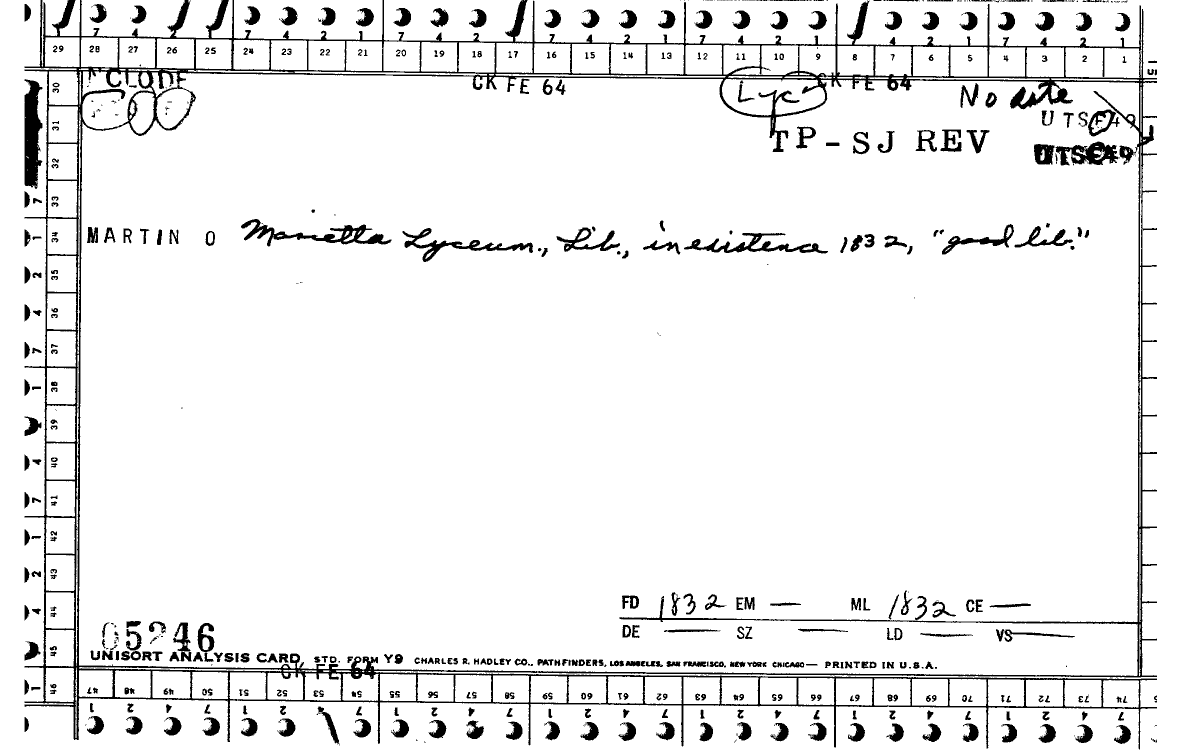 7 4 2 1 7 4 2 1 7 4 2 1 7 4 2 1 7 4 2 1 7 4 2 1 7 4 2 1
29 28 27 26 25 24 23 22 21 20 19 18 17 16 15 14 13 12 11 10 9 8 7 6 5 4 3 2 1
CLODE CK FE 64 Lyc CK FE 64 No date
UTSE49
TP-SJ REV
UTSE49
MARTIN O Marietta Lyceum., Lib., in existence 1832, "good lib."
30
31
32
7 33
1 34
2 35
4 36
7 37
1 38
2 39
4 40
7 41
1 42
2 43
4 44
45
1 46
FD 1832 EM — ML 1832 CE —
DE — SZ LD — VS —
05246
UNISORT ANALYSIS CARD STD. FORM Y9 CHARLES R. HADLEY CO., PATHFINDERS, LOS ANGELES, SAN FRANCISCO, NEW YORK CHICAGO — PRINTED IN U.S.A.
CK FE 64
47 48 49 50 51 52 53 54 55 56 57 58 59 60 61 62 63 64 65 66 67 68 69 70 71 72 73 74
1 2 4 7 1 2 4 7 1 2 4 7 1 2 4 7 1 2 4 7 1 2 4 7 1 2 4 7